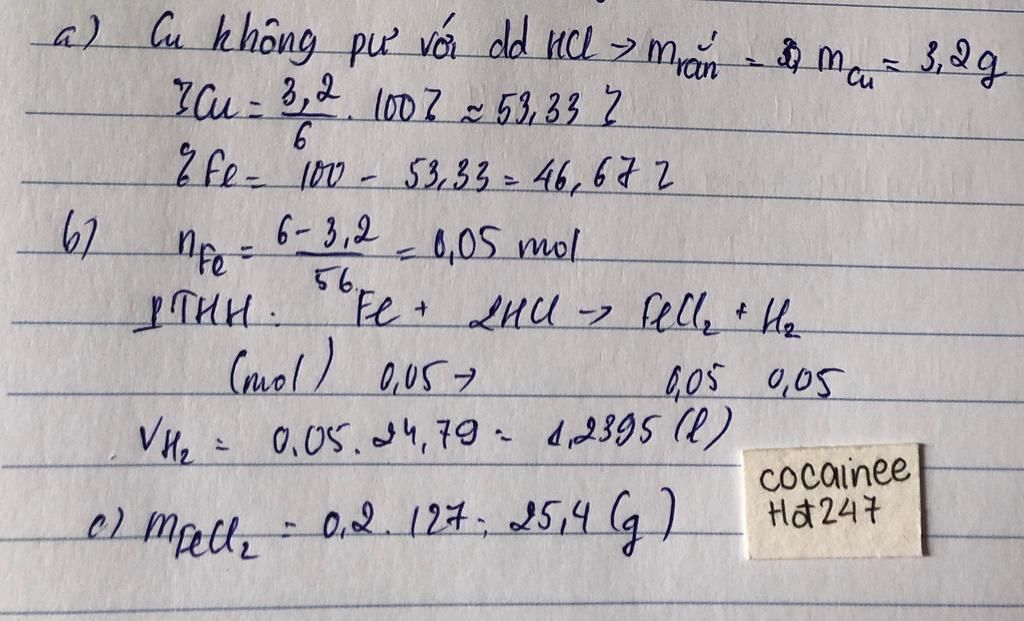 a) Cu không pư với dd HCl → m rắn = m Cu = 3,2g
%Cu = 3,2/6 . 100% ≈ 53,33 %
%Fe = 100 - 53,33 = 46,67 %
b) nFe = 6-3,2/56 = 0,05 mol
PTHH. Fe + 2HCl → FeCl2 + H2
(mol) 0,05 → 0,05 0,05
VH2 = 0,05.24,79 = 1,2395 (l)
c) mFeCl2 = 0,2 . 127 = 25,4 (g)
cocainee
Hđ247